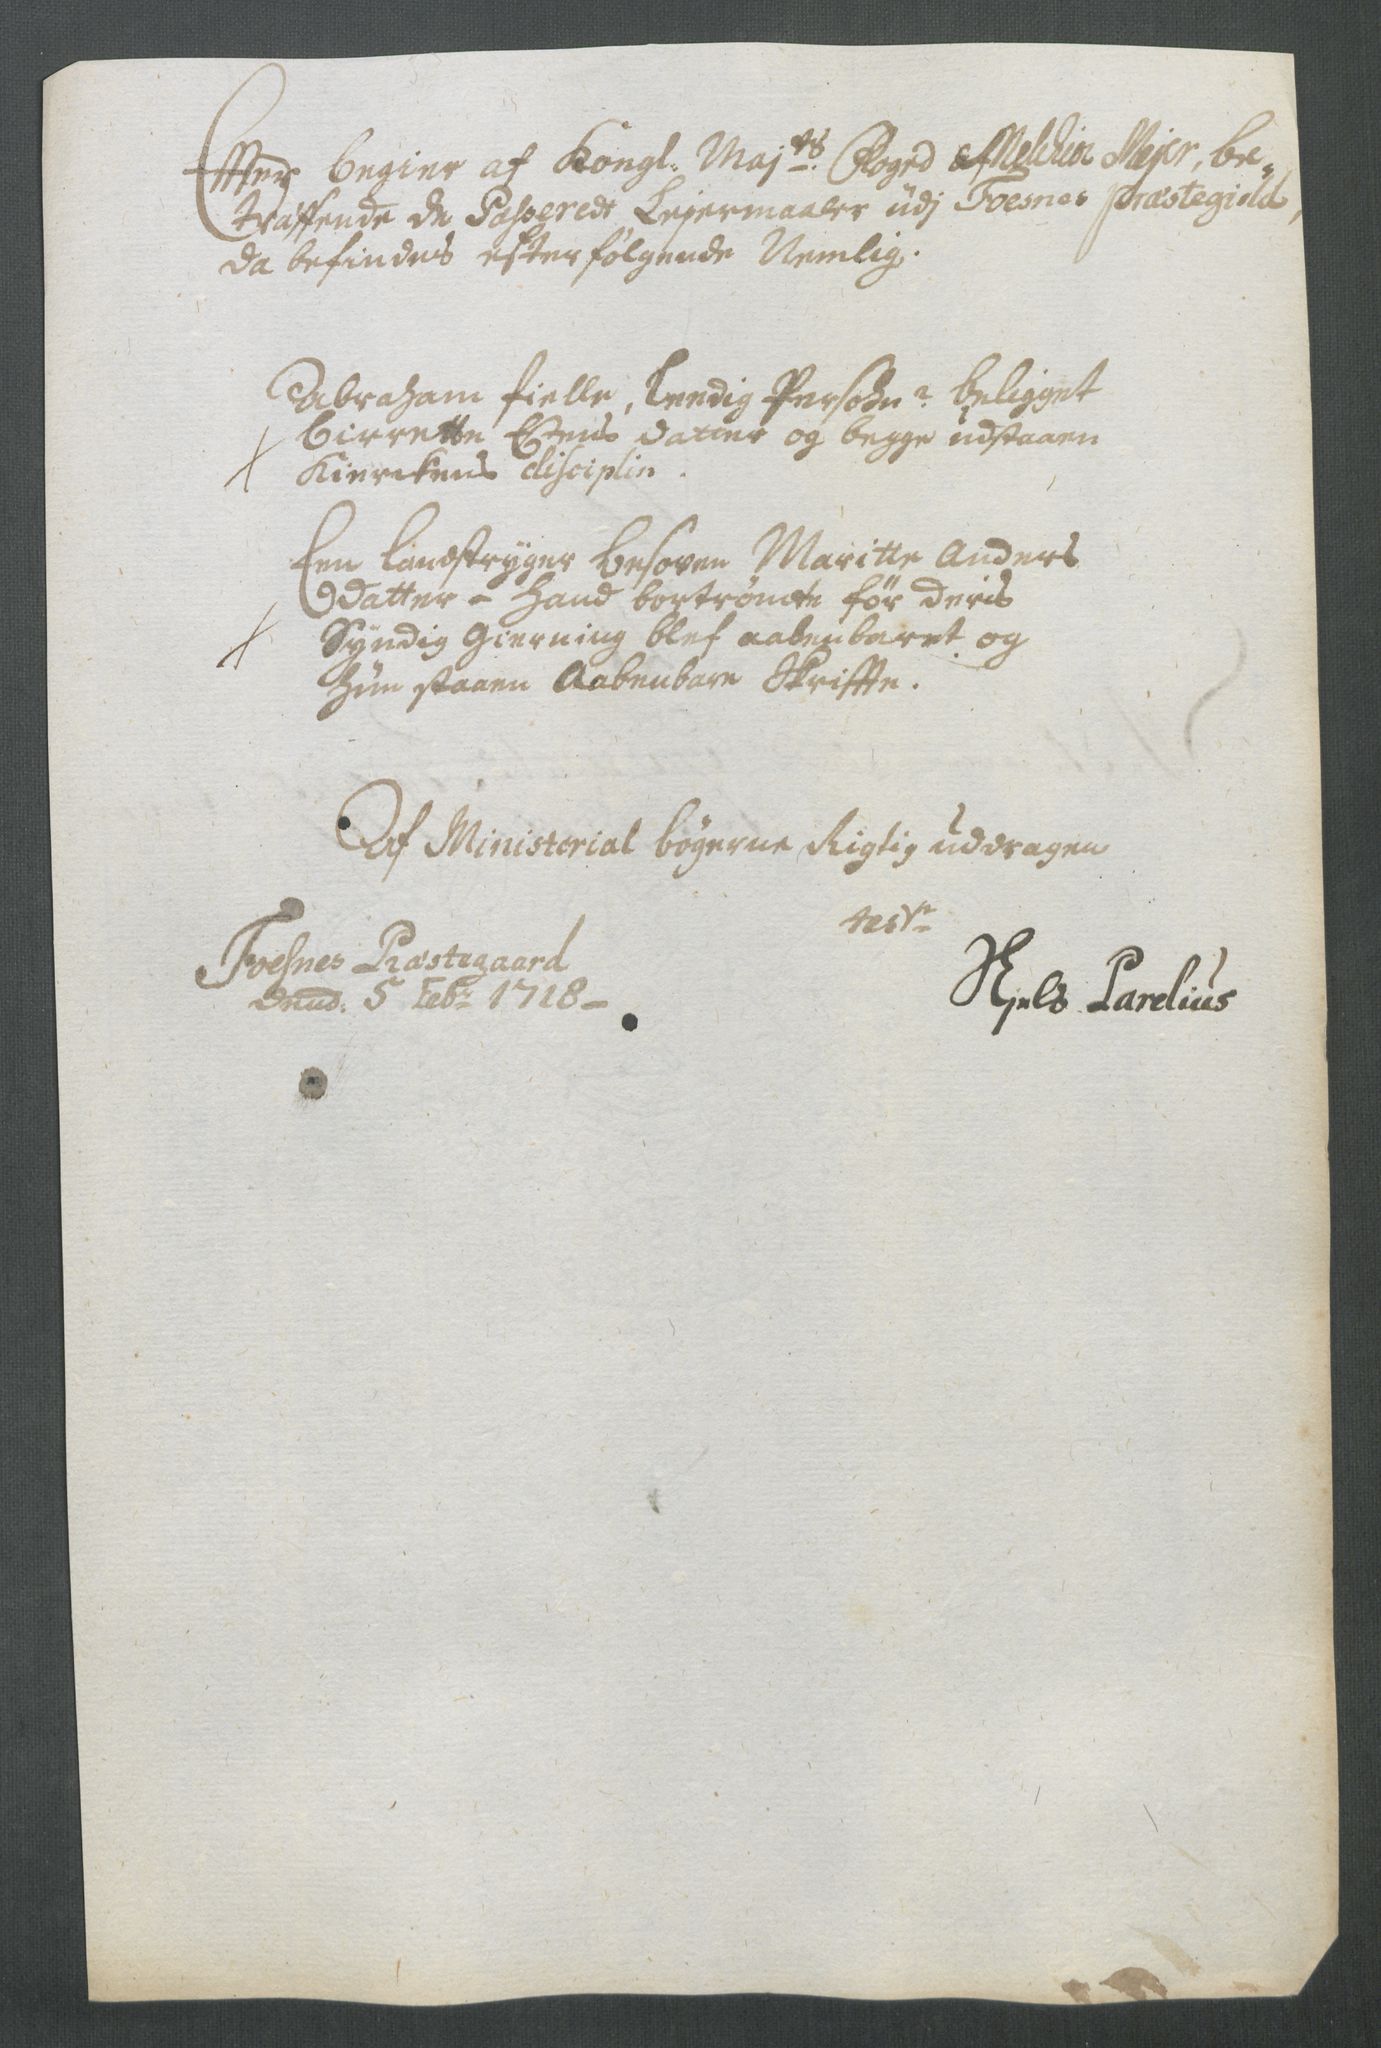 Effter begier af Kongl: Maj:ts Foged Melchior Mejer, be-
träffende de Passerede Lejermaaler üdj Foesnes præstegield,
da befindes efterfølgende Nemlig.
Abraham fielle, Leedig Persohn beligget
Birrette Estens datter og begge udstaaen
Kierckens disciplin.
Een landstryger besoven Maritte Anders
Datter - hand bortrømte før deris
Syndig Gierning blef aabenbaret og
hun staaen Aabenbare Skriffte.
Af Ministerial bøgerne Rigtig uddragen
test:
Foesnes Præstegaard
5 Feb: 1718 -
Njels Parelius